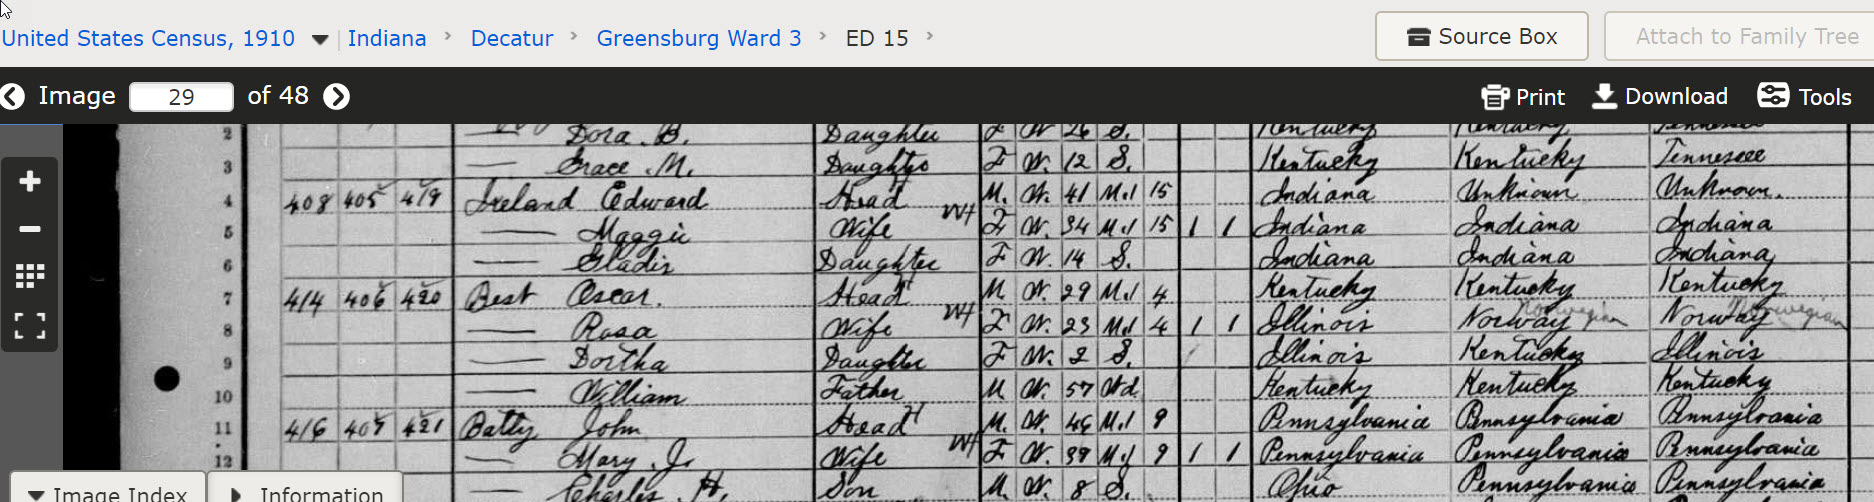 United States Census, 1910 Indiana Decatur Greensburg Ward 3 ED 15 Source Box Attach to Family Tree
Image 29 of 48 Print Download Tools
2 Dora B. Daughter F W 26 S. Kentucky Kentucky Tennessee
3 Grace M. Daughter F W. 12 S. Kentucky Kentucky Tennessee
4 408 405 419 Ireland Edward Head M. W. 41 M.1 15 Indiana Unknown Unknown.
5 Maggie Wife F W. 34 M.1 15 1 1 Indiana Indiana Indiana
6 Gladis Daughter F W. 14 S. Indiana Indiana Indiana
7 414 406 420 Best Oscar. Head M W. 29 M.1 4 Kentucky Kentucky Kentucky
8 Rosa Wife F W. 23 M.1 4 1 1 Illinois Norway Norwegian Norway Norwegian
9 Daughter F W. 2 S. Illinois Kentucky Illinois
10 William Father M W. 57 Wd. Kentucky Kentucky Kentucky
11 416 407 421 Batty John Head M. W. 46 M.1 9 Pennsylvania Pennsylvania Pennsylvania
12 Mary J. Wife F W. 39 M.1 9 1 1 Pennsylvania Pennsylvania Pennsylvania
Charles H. Son M. W. 8 S. Ohio Pennsylvania Pennsylvania
Image Index Information